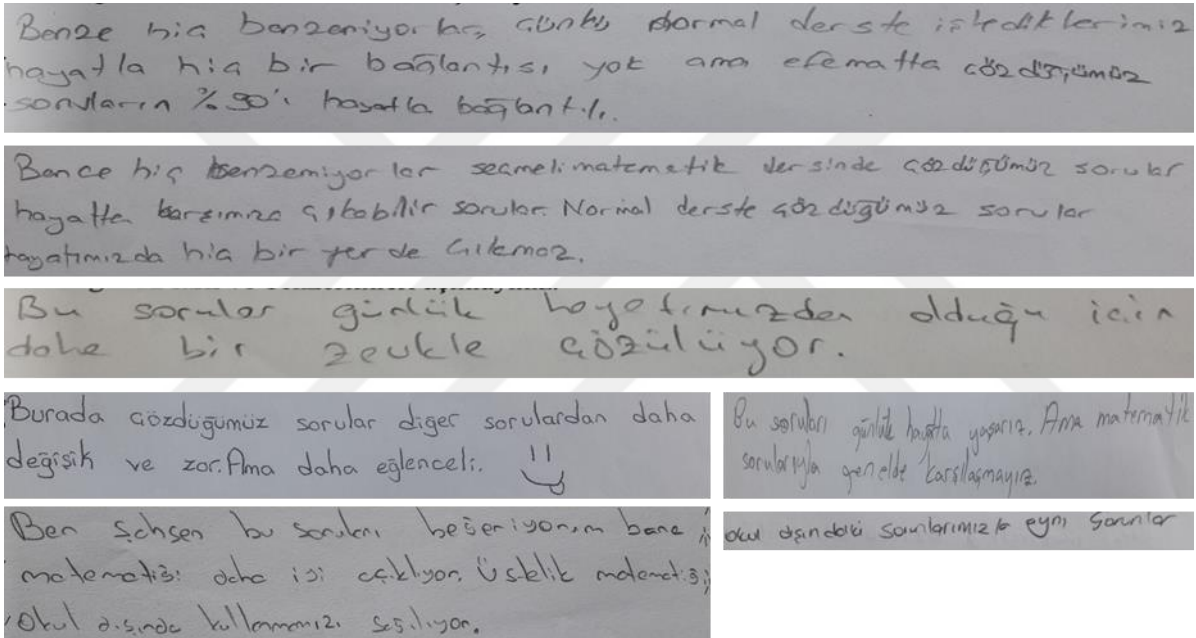 Benze hiç benzemiyorlar, çünkü normal derste işlediklerimiz
hayatla hiç bir bağlantısı yok ama efematta çözdüğümüz
soruların %90'ı hayatla bağlantılı.
Bence hiç benzemiyorlar seçmeli matematik dersinde çözdüğümüz sorular
hayatta karşımıza çıkabilir sorular. Normal derste çözdüğümüz sorular
hayatımızda hiç bir yerde çıkmaz.
Bu sorular günlük hayatımızdan olduğu için
daha bir zevkle çözülüyor.
Burada çözdüğümüz sorular diğer sorulardan daha
değişik ve zor. Ama daha eğlenceli.
Bu soruları günlük hayatta yaşarız. Ama matematik
sorularıyla genelde karşılaşmayız.
Ben şahsen bu soruları beğeniyorum bana
matematiği daha iyi açıklıyor. Üstelik matematiği
Okul dışında kullanmamızı sağlıyor.
okul dışındaki sorunlarımızla aynı sorunlar